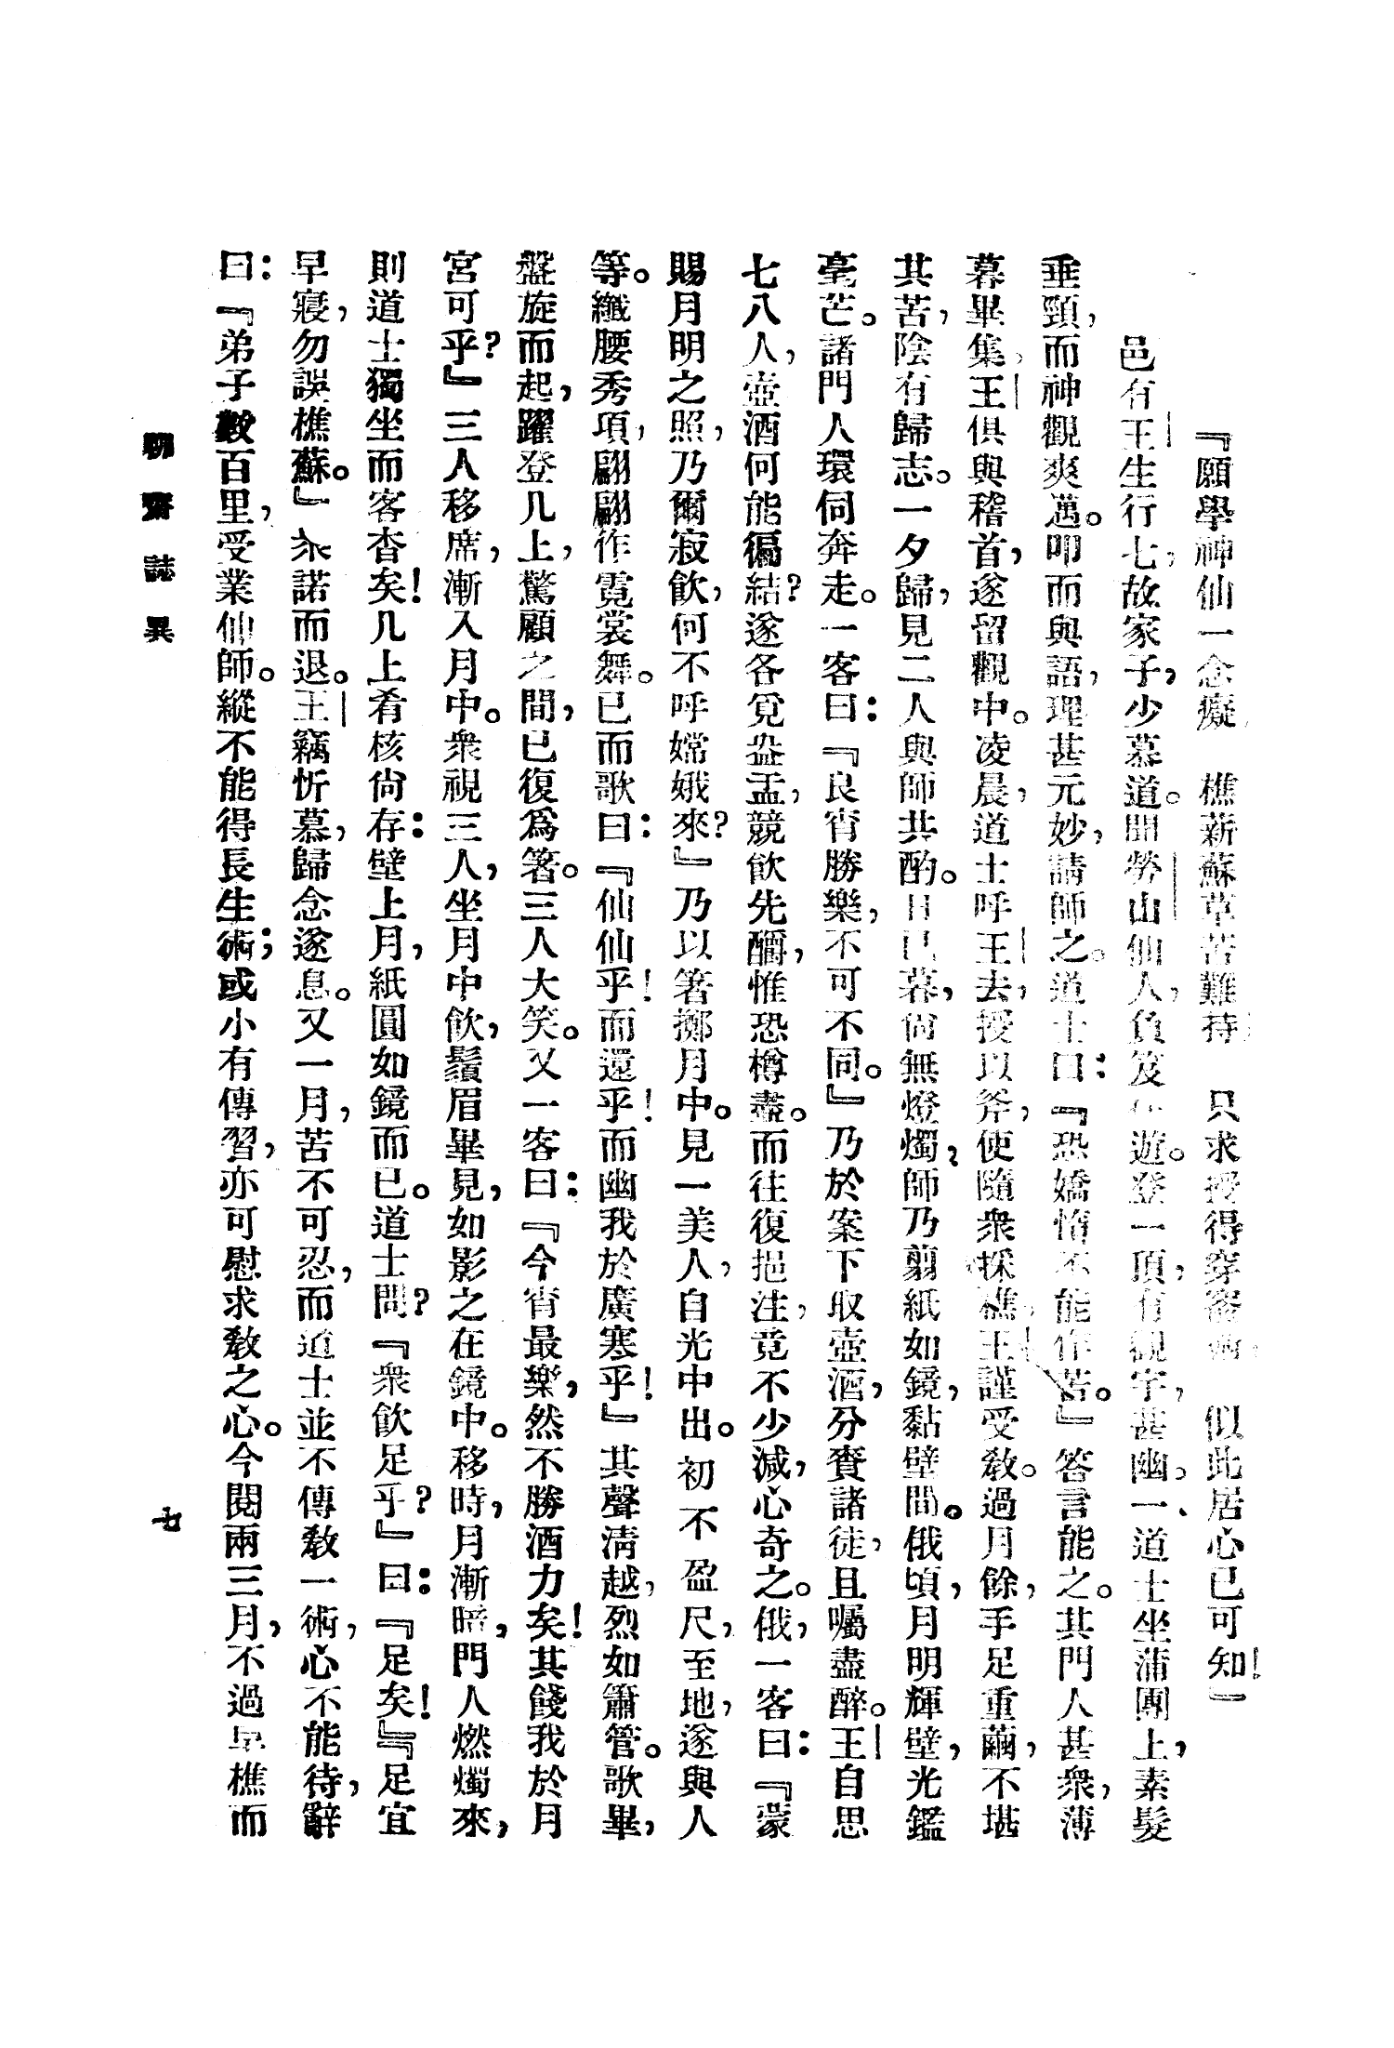 『願學神仙一念癡　樵薪蘇草苦難持　只求授得穿窬　似此居心已可知』
邑有王生行七，故家子，少慕道。聞勞山仙人，負笈遊。登一頂，有觀宇甚幽。一道士坐蒲團上，素髮
垂頸，而神觀爽邁。叩而與語，理甚元妙，請師之。道士曰：『恐嬌惰不能作苦。』答言能之。其門人甚衆，薄
暮畢集。王俱與稽首，遂留觀中。凌晨，道士呼王去，授以斧，使隨衆採樵。王謹受敎。過月餘，手足重繭，不堪
其苦，陰有歸志。一夕歸，見二人與師共酌。日已暮，尙無燈燭，師乃翦紙如鏡，黏壁間。俄頃，月明輝壁，光鑑
毫芒。諸門人環伺奔走。一客曰：『良宵勝樂，不可不同。』乃於案下取壺酒，分賚諸徒，且囑盡醉。王自思
七八人，壺酒何能徧結？遂各覓盎盂，競飲先釂，惟恐樽盡。而往復挹注，竟不少減，心奇之。俄，一客曰：『蒙
賜月明之照，乃爾寂飮，何不呼嫦娥來？』乃以箸擲月中。見一美人，自光中出。初不盈尺，至地，遂與人
等。纖腰秀項，翩翩作霓裳舞。已而歌曰：『仙仙乎！而還乎！而幽我於廣寒乎！』其聲淸越，烈如簫管。歌畢，
盤旋而起，躍登几上，驚顧之間，已復爲箸。三人大笑。又一客曰：『今宵最樂，然不勝酒力矣！其餞我於月
宮可乎？』三人移席，漸入月中。衆視三人，坐月中飮，鬚眉畢見，如影之在鏡中。移時，月漸暗，門人燃燭來，
則道士獨坐而客杳矣！几上肴核尙存：壁上月，紙圓如鏡而已。道士問？『衆飮足乎？』曰：『足矣！』『足宜
早寢，勿誤樵蘇。』衆諾而退。王竊忻慕，歸念遂息。又一月，苦不可忍，而道士並不傳敎一術，心不能待，辭
曰：『弟子數百里，受業仙師。縱不能得長生術；或小有傳習，亦可慰求敎之心。今閱兩三月，不過早樵而
聊齋誌異
七